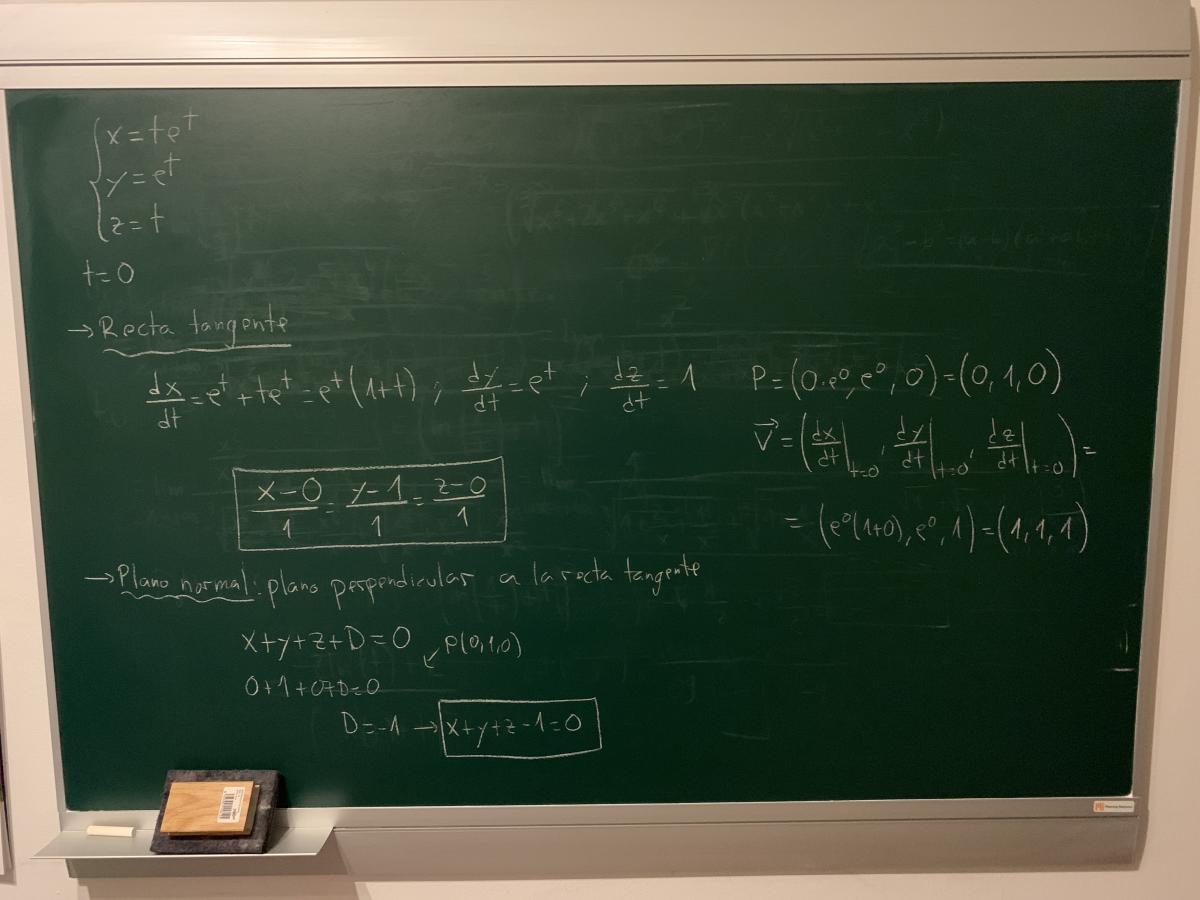 x = te^t
y = e^t
z = t
t = 0
→ Recta tangente
dx/dt = e^t + te^t = e^t(1+t) ; dy/dt = e^t ; dz/dt = 1
P = (0·e^0, e^0, 0) = (0, 1, 0)
V⃗ = (dx/dt|t=0, dy/dt|t=0, dz/dt|t=0) =
= (e^0(1+0), e^0, 1) = (1, 1, 1)
x-0/1 = y-1/1 = z-0/1
→ Plano normal: plano perpendicular a la recta tangente
x+y+z+D=0 ↙ P(0,1,0)
0+1+0+D=0
D=-1 → x+y+z-1=0